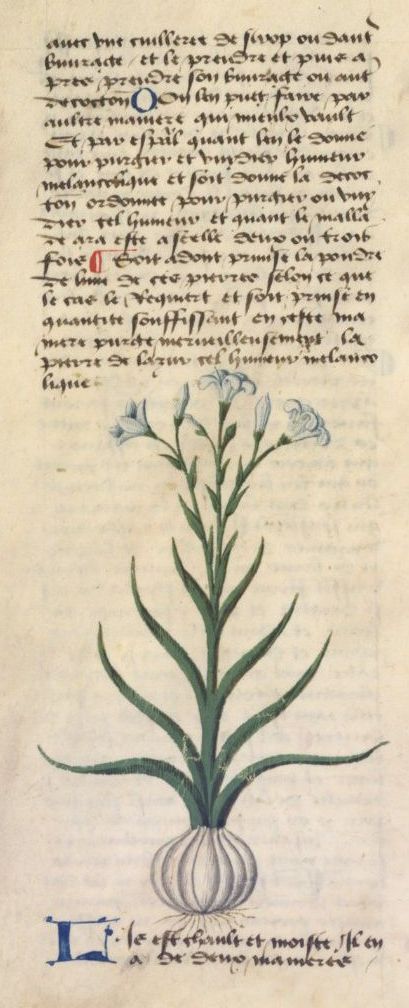 avec une cuilleree de sirop ou daut
buvrage et le prendre et puis a
pres prendre son buvrage ou aut
decoction On len puet faire par
aultre maniere qui mieulx vault
Et par espãl quant len le donne
pour purgier et vuydier humeur
melancolique et soit donne la decoc
ton ordonnee pour purgier ou vuy
dier tel humeur et quant le malla
de ara este a selle deux ou trois
fois Soit adont prinse la pouldre
de lune de ces pierres selon ce que
le cas le requiert et soit prinse en
quantite souffissant en ceste ma
niere purge merveilleusement la
pierre de lazur tel humeur melanco
lique
Lis est chault et moiste Il en
a de deux manieres